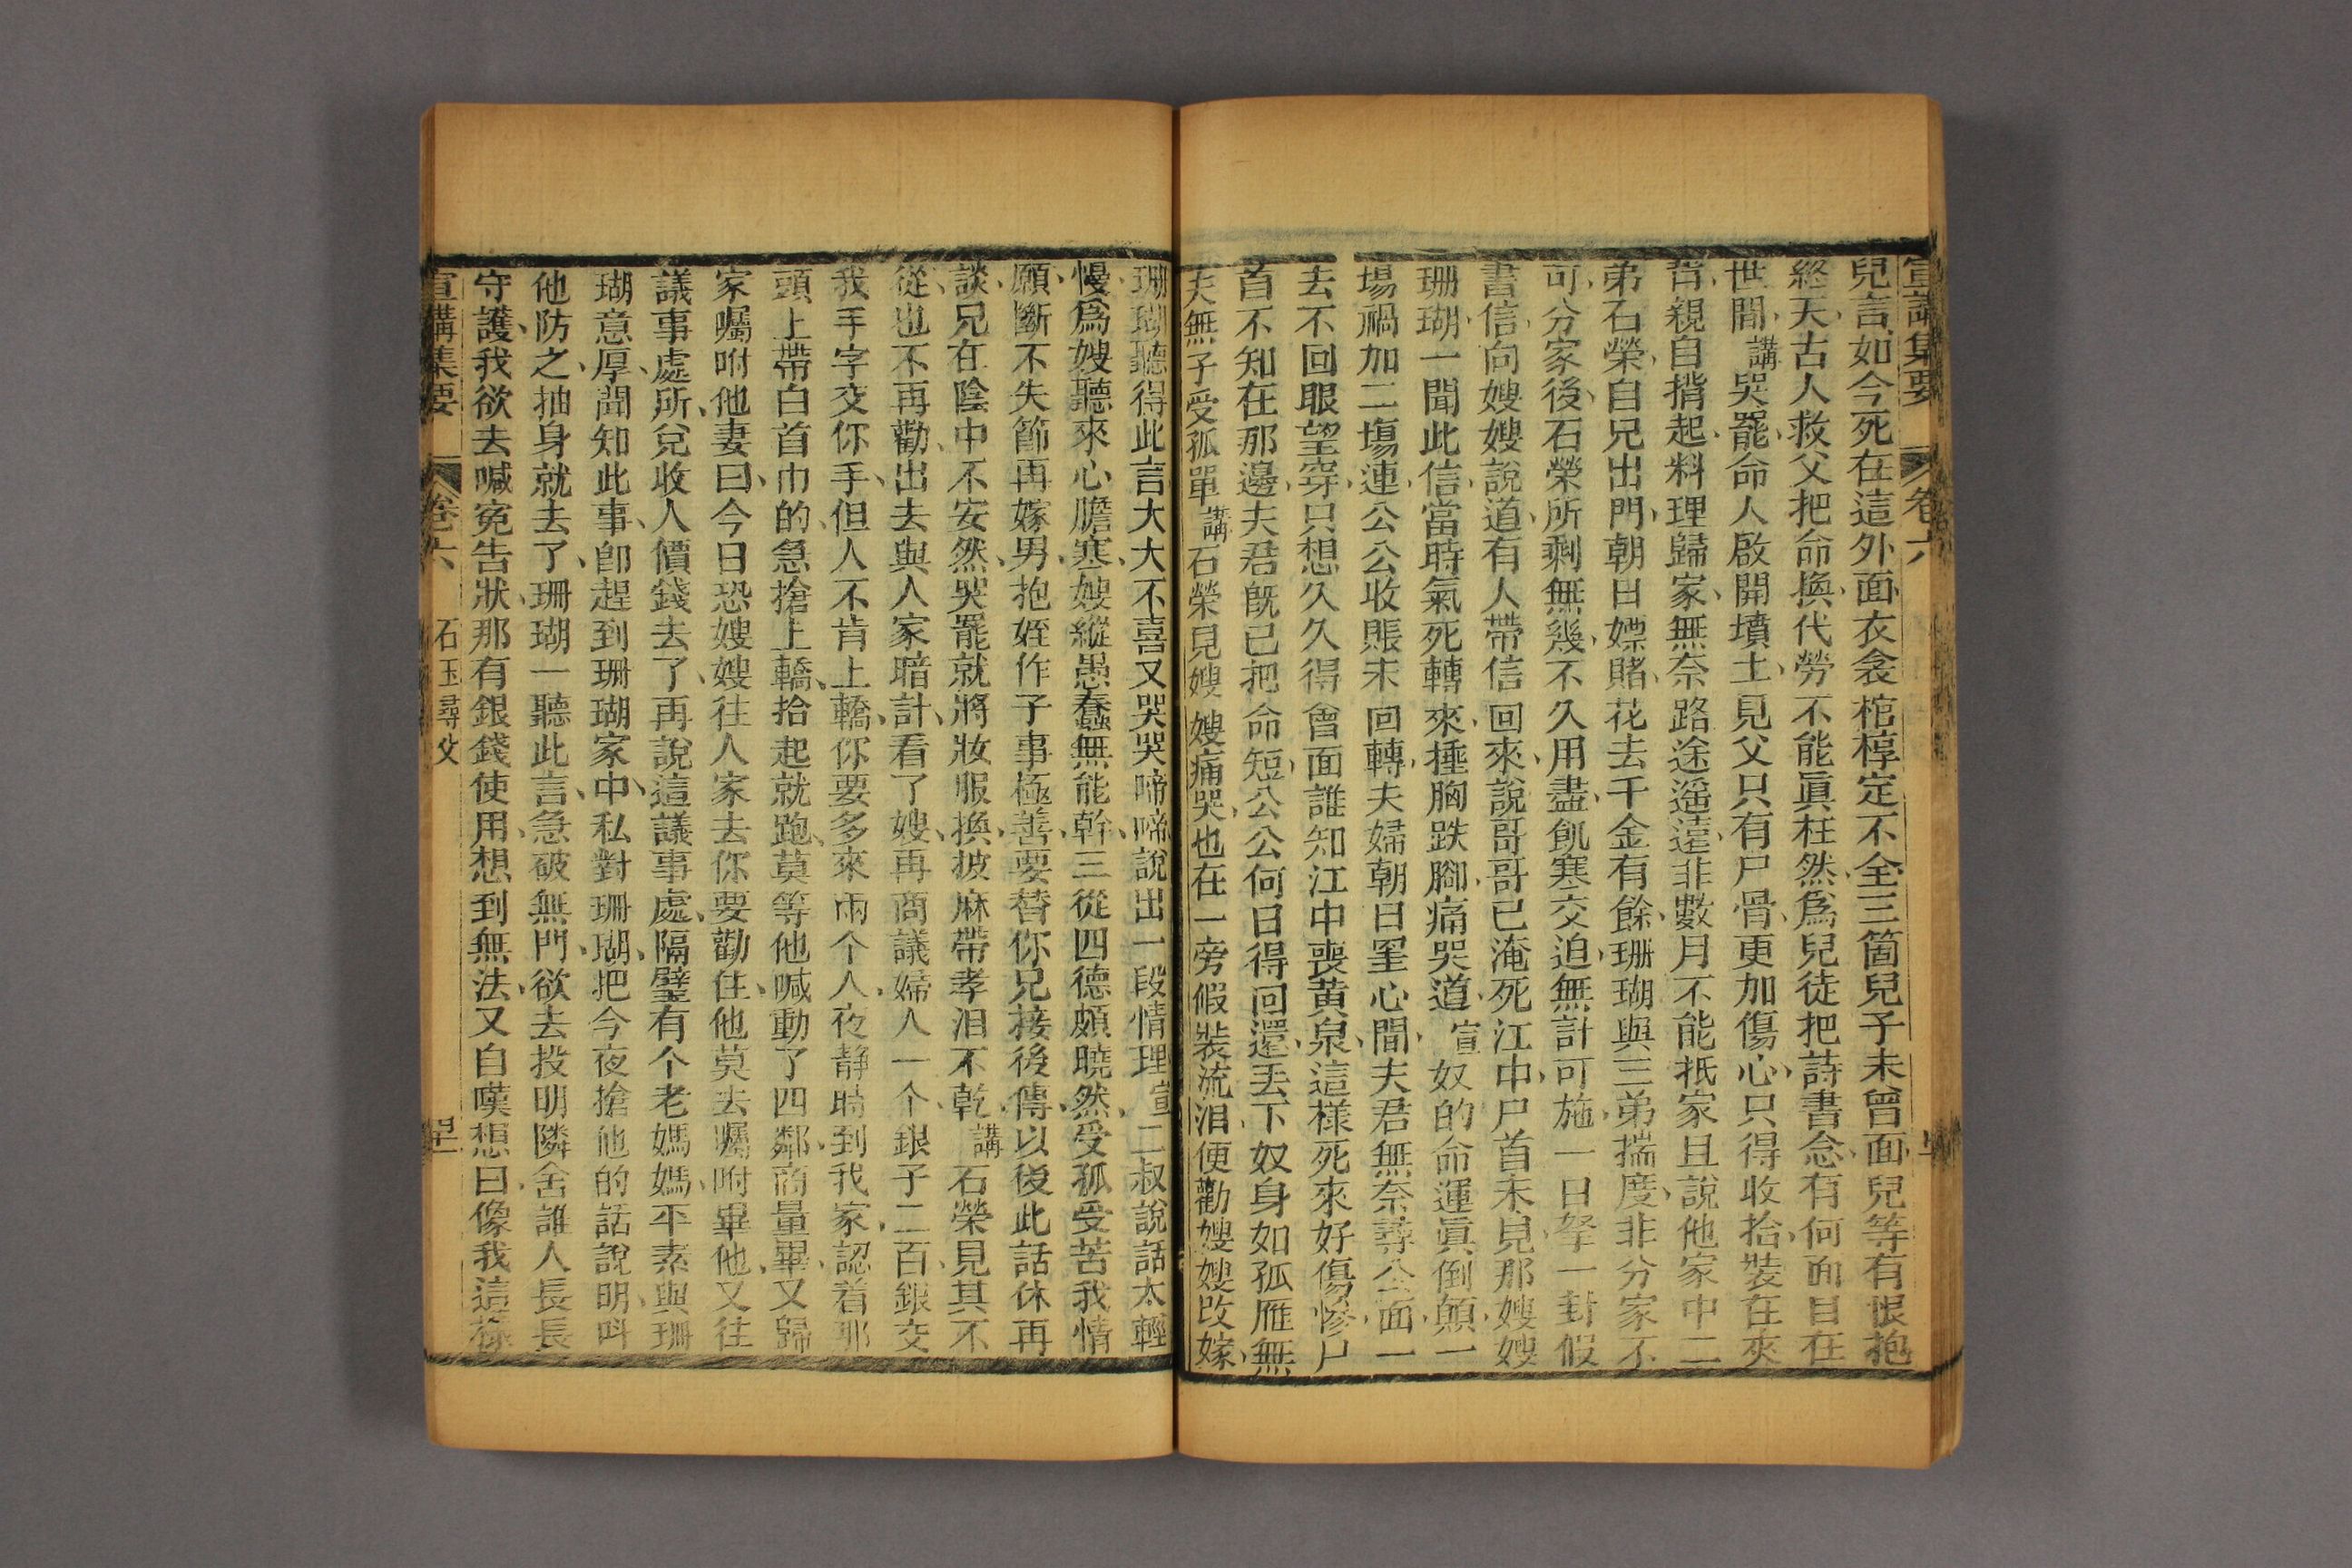 宣講集要 卷六
兒言、如今死在這外面衣衾棺椁定不全三箇兒子未曾面兒等有恨抱
終天古人救父把命換代勞不能眞枉然爲兒徒把詩書念有何面目在
世間 講 哭罷命人啟開墳土見父只有尸骨更加傷心只得收拾裝在夾
背親自揹起料理歸家無奈路途遥遠非數月不能抵家且說他家中二
弟石榮自兄出門朝日嫖賭花去千金有餘珊瑚與三弟揣度非分家不
可分家後石榮所剩無幾不久用盡飢寒交迫無計可施一日拏一封假
書信向嫂嫂說道有人帶信回來說哥哥已淹死江中尸首未見那嫂嫂
珊瑚一聞此信當時氣死轉來捶胸跌腳痛哭道 宣 奴的命運眞倒顛一
塲禍加二塲連公公收賬未回轉夫婦朝日罣心間夫君無奈尋公面一
去不回眼望穿只想久久得會面誰知江中喪黄泉這樣死來好傷慘尸
首不知在那邊夫君旣已把命短公公何日得回還丟下奴身如孤雁無
夫無子受孤單 講 石榮見嫂嫂痛哭也在一旁假裝流泪便勸嫂嫂改嫁
珊瑚聽得此言大大不喜又哭哭啼啼說出一段情理 宣 二叔說話太輕
慢爲嫂聽來心膽寒嫂縱愚蠢無能幹三從四德頗曉然受孤受苦我情
願斷不失節再嫁男抱姪作子事極善要替你兄接後傳以後此話休再
談兄在陰中不安然哭罷就將妝服換披麻帶孝泪不乾 講 石榮見其不
從也不再勸出去與人家暗計看了嫂再商議婦人一个銀子二百銀交
我手字交你手但人不肯上轎你要多來兩个人夜静時到我家認着那
頭上帶白首巾的急搶上轎拾起就跑莫等他喊動了四鄰商量畢又歸
家囑咐他妻曰今日恐嫂嫂往人家去你要勸住他莫去囑咐畢他又往
議事處所兌收人價錢去了再說這議事處隔壁有个老媽媽平素與珊
瑚意厚聞知此事卽趕到珊瑚家中私對珊瑚把今夜搶他的話說明叫
他防之抽身就去了珊瑚一聽此言急破無門欲去投明隣舍誰人長長
守護我欲去喊寃告狀那有銀錢使用想到無法又自嘆想曰像我這樣
宣講集要 卷六 石玉尋父